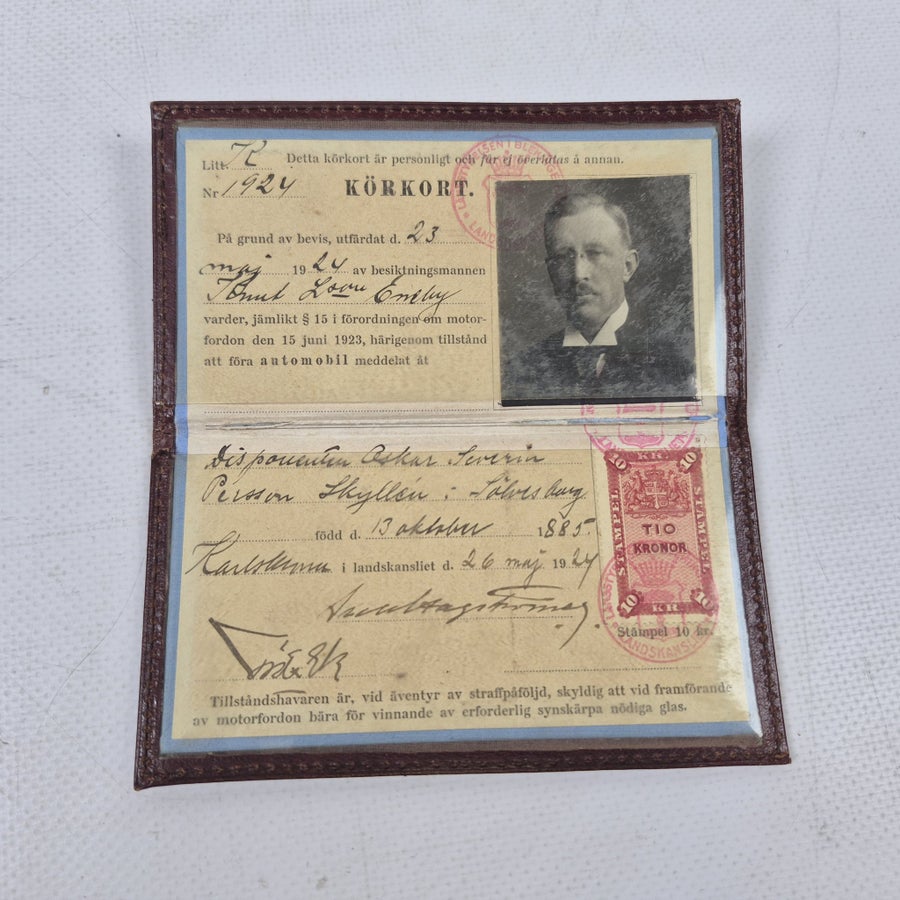 Litt. K Detta körkort är personligt och får ej överlåtas å annan.
Nr 1924 KÖRKORT.
LÄNSSTYRELSEN I BLEKINGE
På grund av bevis, utfärdat d. 23
maj 1924 av besiktningsmannen
Knut Eneby
varder, jämlikt § 15 i förordningen om motor-
fordon den 15 juni 1923, härigenom tillstånd
att föra automobil meddelat åt
Disponenten Oskar Severin
Persson Skyllén i Sölvesborg
född d. 13 oktober 1885.
Karlskrona i landskansliet d. 26 maj 1924
10 KR. 10
STÄMPEL
TIO
KRONOR
STÄMPEL
10 KR. 10
Stämpel 10 kr.
LANDSKANSLI
Tillståndshavaren är, vid äventyr av straffpåföljd, skyldig att vid framförande
av motorfordon bära för vinnande av erforderlig synskärpa nödiga glas.